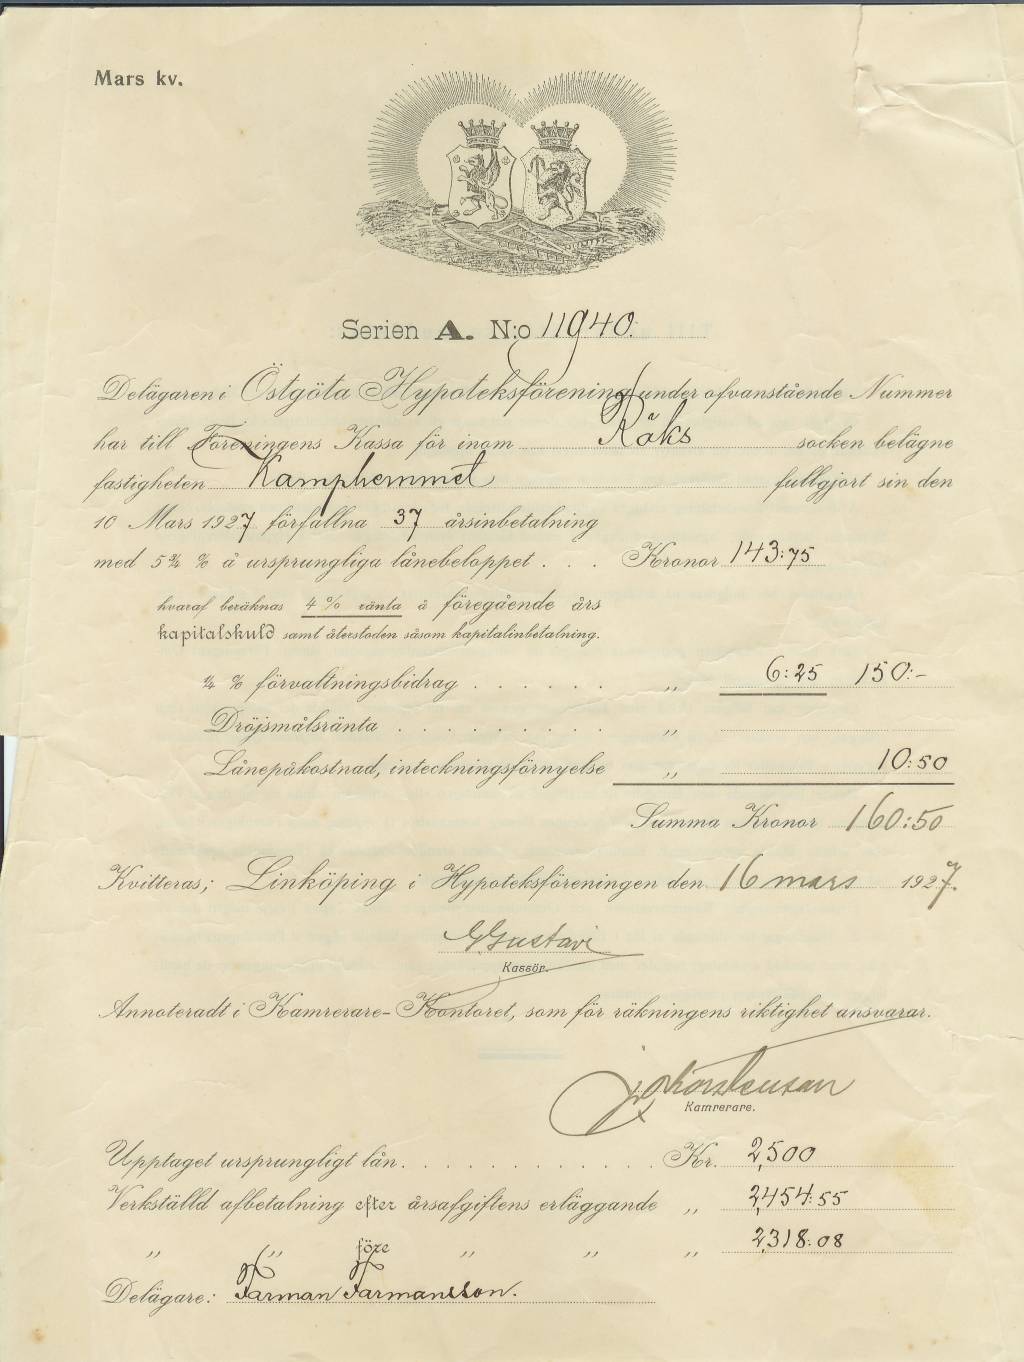 Mars kv.
Serien A. N:o 11940.
Delägaren i Östgöta Hypoteksförening under ofvanstående Nummer
har till Föreningens Kassa för inom Röks socken belägne
fastigheten Kamphemmet fullgjort sin den
10 Mars 1927 förfallna 37 årsinbetalning
med 5¾ % å ursprungliga lånebeloppet . . . Kronor 143:75
hvaraf beräknas 4 % ränta å föregående års
kapitalskuld samt återstoden såsom kapitalinbetalning.
¼ % förvaltningsbidrag . . . . . . „ 6:25 150:-
Dröjsmålsränta . . . . . . . . . „
Lånepåkostnad, inteckningsförnyelse „ 10:50
Summa Kronor 160:50
Kvitteras; Linköping i Hypoteksföreningen den 16 mars 1927.
G Gustavi
Kassör.
Annoteradt i Kamrerare-Kontoret, som för räkningens riktighet ansvarar.
Kamrerare.
Upptaget ursprungligt lån. . . . . . . . . . . . Kr. 2,500
Verkställd afbetalning efter årsafgiftens erläggande „ 2,454:55
„ „ före „ „ „ 2,318:08
Delägare: Farman Farmansson.